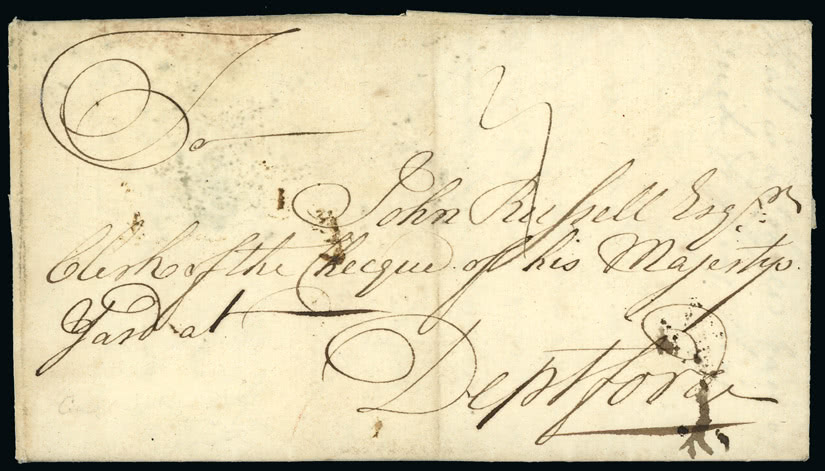 To
John Russell Esqr.
Clerk of the Checque of his Majestys
Yard at
Deptford